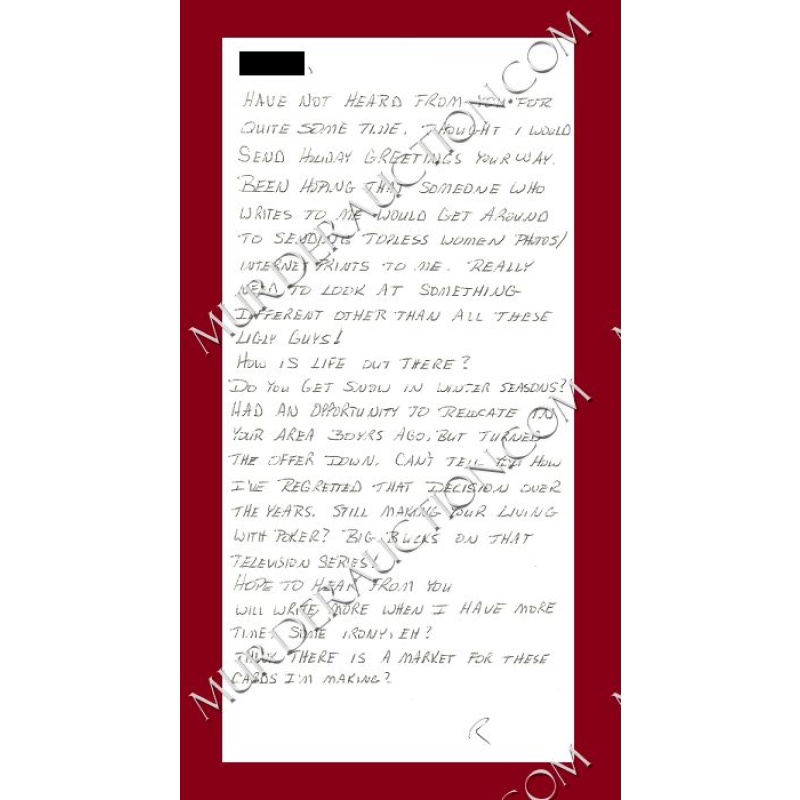 HAVE NOT HEARD FROM YOU FOR
QUITE SOME TIME. THOUGHT I WOULD
SEND HOLIDAY GREETINGS YOUR WAY.
BEEN HOPING THAT SOMEONE WHO
WRITES TO ME WOULD GET AROUND
TO SENDING TOPLESS WOMEN PHOTOS/
INTERNET PRINTS TO ME. REALLY
NEED TO LOOK AT SOMETHING
DIFFERENT OTHER THAN ALL THESE
UGLY GUYS!
HOW IS LIFE OUT THERE?
DO YOU GET SNOW IN WINTER SEASONS?
HAD AN OPPORTUNITY TO RELOCATE IN
YOUR AREA 30YRS AGO, BUT TURNED
THE OFFER DOWN. CAN'T TELL YOU HOW
I'VE REGRETTED THAT DECISION OVER
THE YEARS. STILL MAKING YOUR LIVING
WITH POKER? BIG BUCKS ON THAT
TELEVISION SERIES.
HOPE TO HEAR FROM YOU
WILL WRITE MORE WHEN I HAVE MORE
TIME. SOME IRONY, EH?
THINK THERE IS A MARKET FOR THESE
CARDS I'M MAKING?
R
MURDERAUCTION.COM
MURDERAUCTION.COM